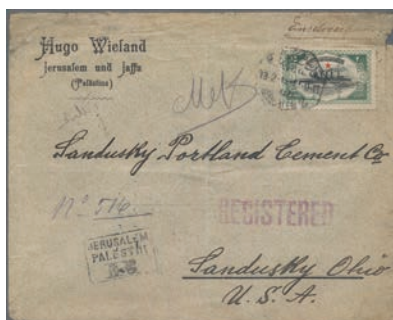 Einschreiben
Hugo Wieland
Jerusalem und Jaffa
(Palästina)
Sandusky Portland Cement Co
No 516.
REGISTERED
JERUSALEM
PALESTINE
Sandusky Ohio
U. S. A.